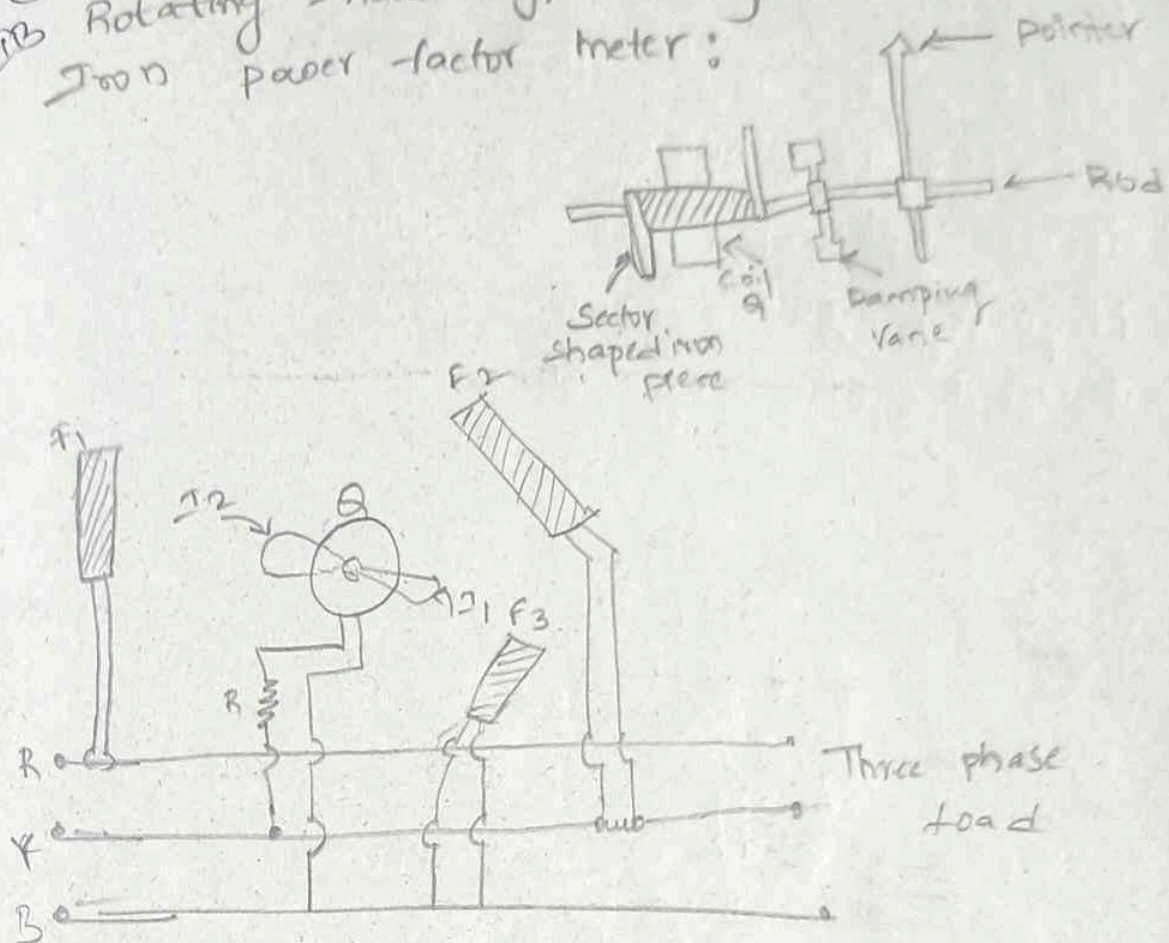 Rotating
Iron power factor meter:
Pointer
Rod
Coil
Q
Damping
Vane
Sector
shaped iron
piece
F2
F1
I2
Q
I1
F3
R
R
Three phase
Load
Y
B